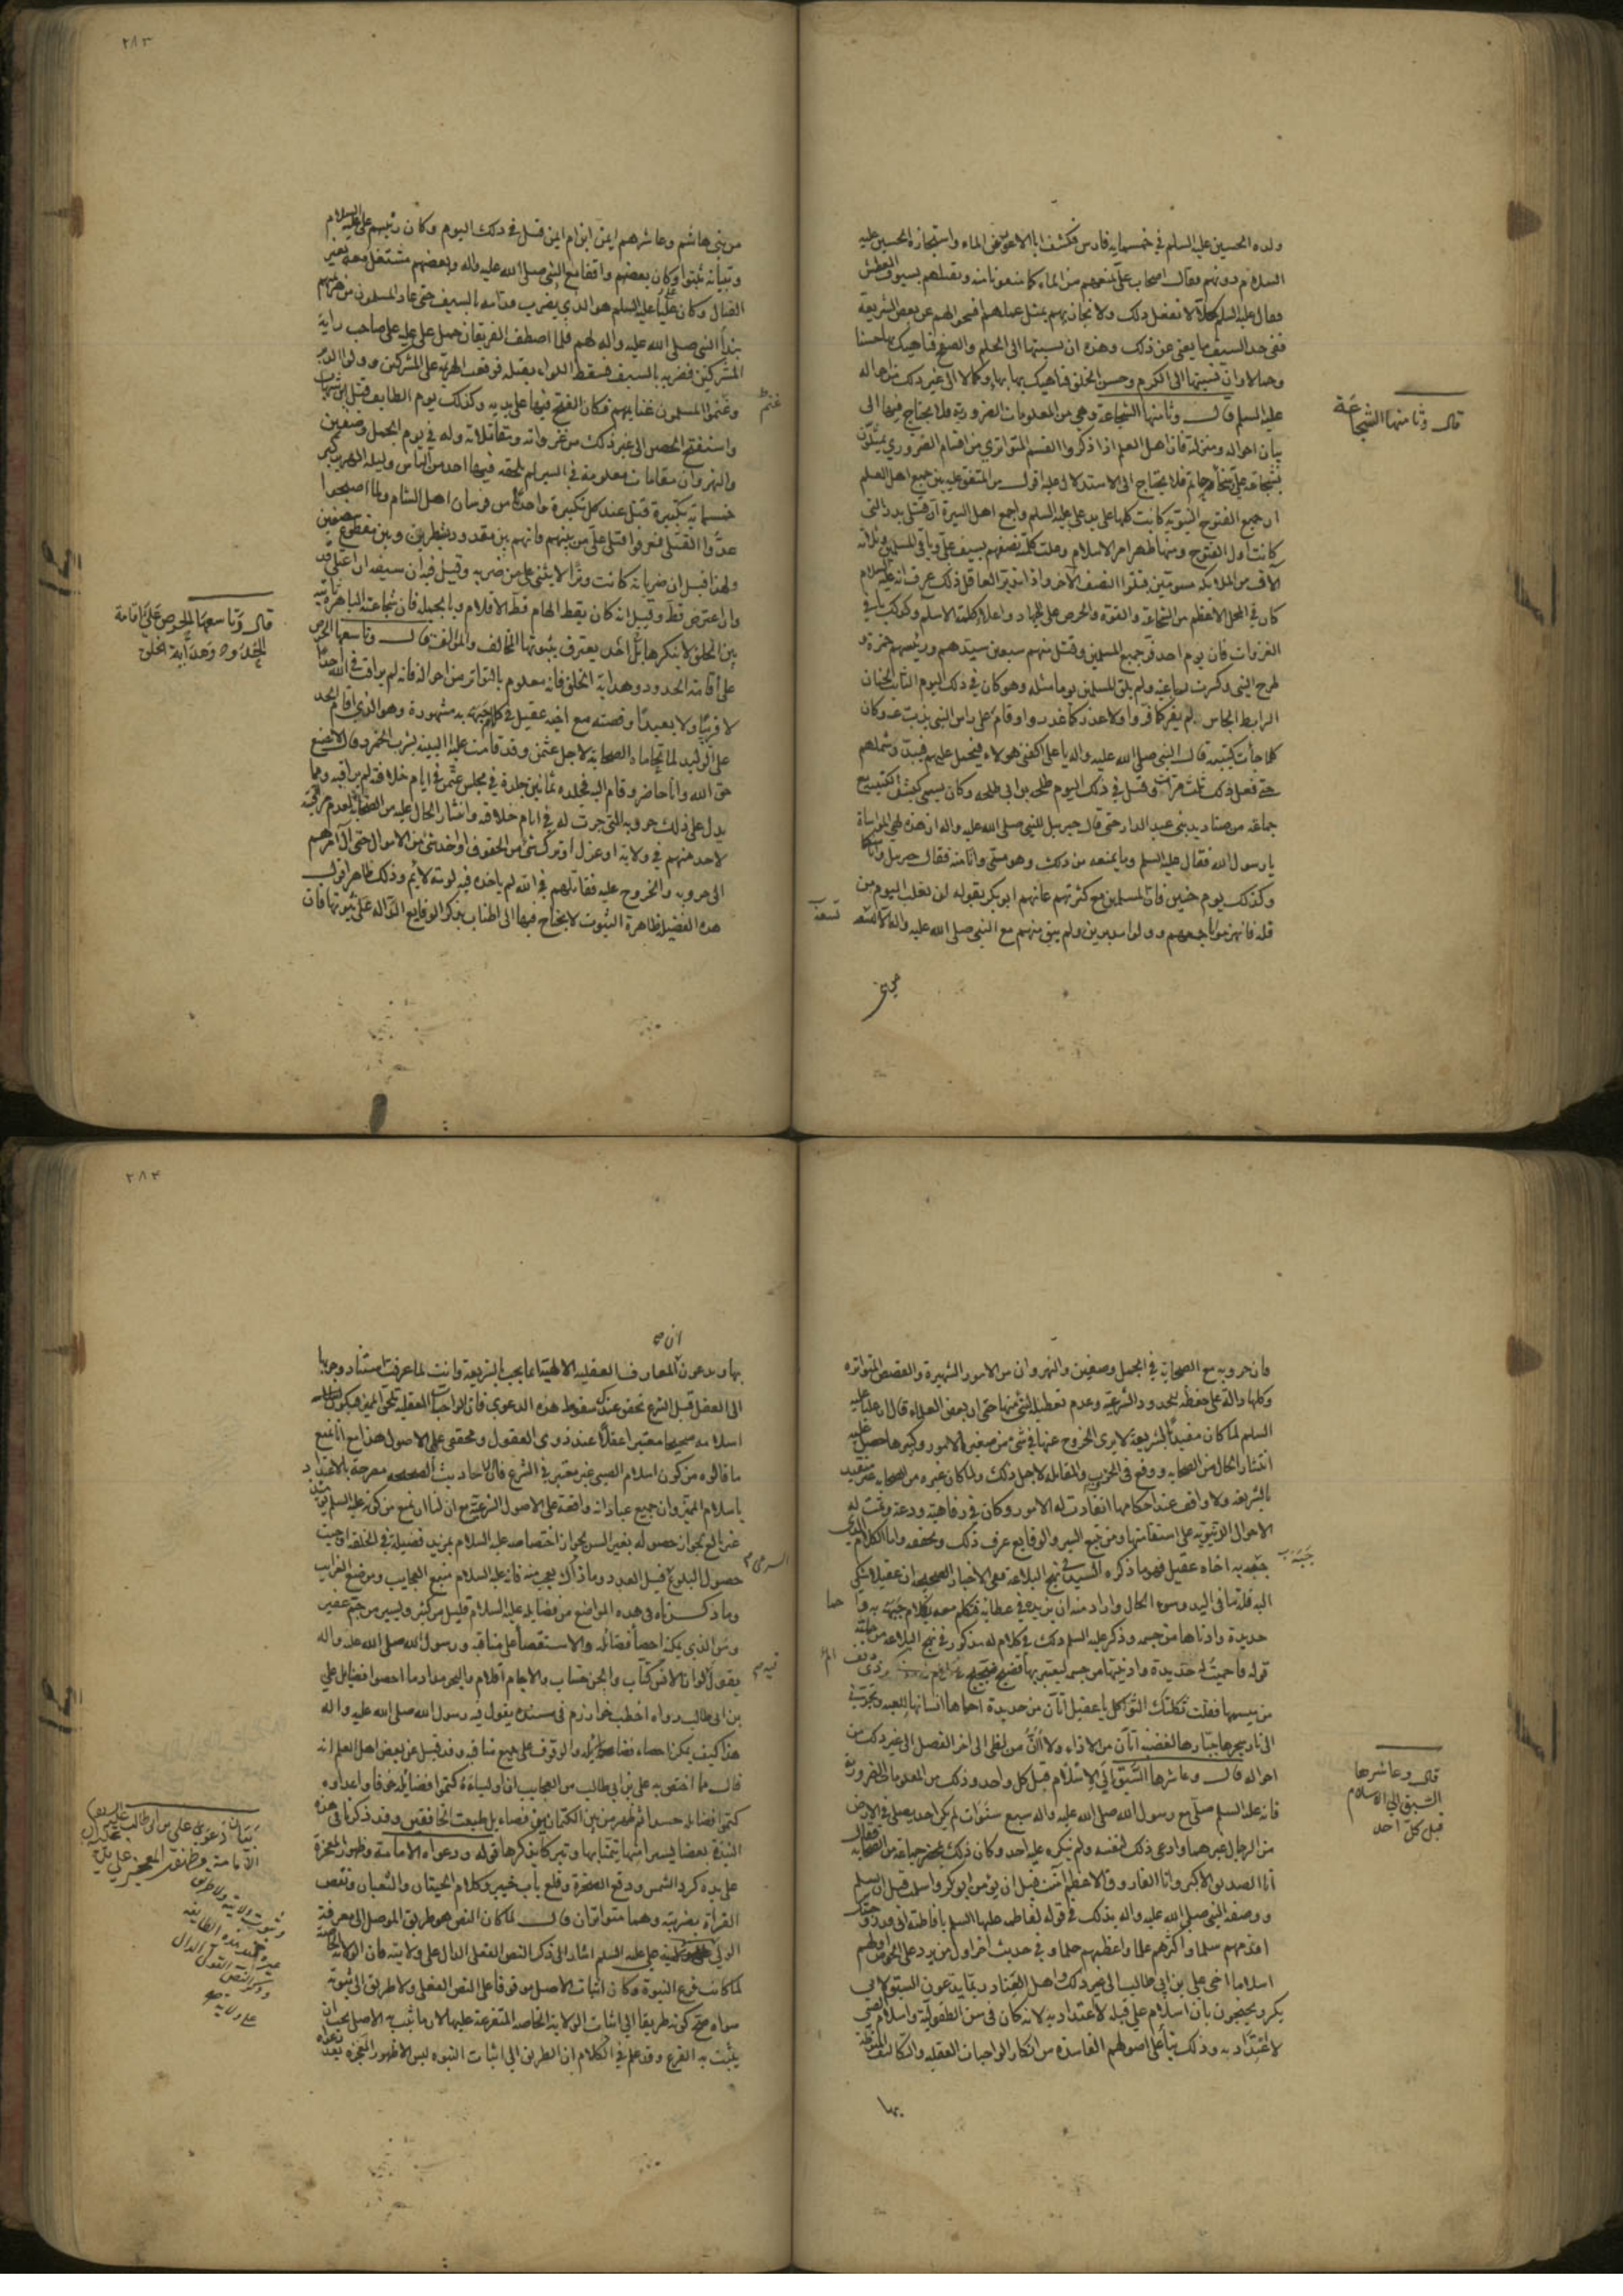 ولده الحسين عليه السلم في خمسمايه فارس فكشف ابا الاعور عن الماء واستجازه الحسين عليه
السلام دونهم فقال اصحاب علي نمنعهم من الماء كما منعونا منه ونقتلهم بسيوف العطش
فقال عليه السلم كلا لا نفعل ذلك ولا نجازيهم بمثل عملهم افسحوا لهم عن بعض الشريعة
ففي حد السيف ما يغني عن ذلك وهذه ان نسبتها الى الحلم والصفح فناهيك بها حسنا
وجمالا وان نسبتها الى الكرم وحسن الخلق فناهيك بها بها وكمالا الى غير ذلك من احواله
عليه السلم قال وثامنها الشجاعة وهي من المعلومات الضرورية فلا يحتاج فيها الى
بيان احواله ومنزلته فان اهل العلم اذا ذكروا القسم المتواتري من اقسام الضروري يمثلون
بشجاعة علي وسخاء حاتم فلا يحتاج الى الاستدلال عليه اقول من المتفق عليه بين جميع اهل العلم
ان جميع الفتوح النبوية كانت كلها على يد علي عليه السلم واجمع اهل السيرة ان قتلى بدر التي
كانت اول الفتوح ومنها ظهر امر الاسلام وعلت كلمته نصفهم بسيف علي وباقي المسلمين وثلاثة
آلاف من الملائكة مسومين قتلوا النصف الآخر واذا تدبر العاقل ذلك عرف انه عليه السلام
كان في المحل الاعظم من الشجاعة والقوة والحرص على الجهاد واعلاء كلمة الاسلام وكذلك باقي
الغزوات فان يوم احد فر جميع المسلمين وقتل منهم سبعون سيدهم ورئيسهم حمزة و
طرح النبي وكسرت رباعيته ولم يلق المسلمين يوما مثله وهو كان في ذلك اليوم الثابت الجنان
الرابط الجاس لم يفر كما فروا ولا غدر كما غدروا وقام على راس النبي يذب عنه وكان
كلما جأت كتيبة قال النبي صلى الله عليه واله يا علي اكفني هولاء فيحمل عليهم فيبدد شملهم
حتى فعل ذلك ثلث مرات وقتل في ذلك اليوم طلحه بن ابي طلحه وكان يسمى كبش الكتيبة مع
جماعة من صناديد بني عبد الدار حتى قال جبرييل للنبي صلى الله عليه واله ان هذه لهي المواساة
يا رسول الله فقال عليه السلم وما يمنعه من ذلك وهو مني وانا منه فقال جبريل وانا منكما
وكذلك يوم حنين فان المسلمين مع كثرتهم عانهم ابو بكر بقوله لن نغلب اليوم من
قلة فانهزموا باجمعهم وولوا مدبرين ولم يبق منهم مع النبي صلى الله عليه واله الا تسعة
تسعة
من بني
قال وثامنها الشجاعة
٢٨٣
من بني هاشم وعاشرهم ايمن ابن ام ايمن قتل في ذلك اليوم وكان رئيسهم علي عليه السلام
وبثباته ثبتوا وكان بعضهم واقفا مع النبي صلى الله عليه واله وبعضهم مشتغل معه بغير
القتال وكان علي عليه السلم هو الذي يضرب قدامه بالسيف حتى عاد المسلمون من هزيمتهم
بنداء النبي صلى الله عليه واله لهم فلما اصطف الفريقان حمل علي عليه على صاحب راية
المشركين فضربه بالسيف فسقط اللواء بقتله فوقعت الهزيمة على المشركين وولوا الدبر
وغنموا المسلمون غنايمهم فكان الفتح فيها على يديه وكذلك يوم الطايف قتل ابن شهاب
غنم
واستفتح الحصن الى غير ذلك من غزواته ومقاتلاته وله في يوم الجمل وصفين
والنهروان مقامات معلومة في السير لم يلحقه فيها احد من الناس وليلة الهرير كبر
خمسماية تكبيرة قتل عند كل تكبيرة واحدا من فرسان اهل الشام ولما اصبحوا
عدوا القتلى فعرفوا قتلى علي من بينهم فانهم بين مقدود بشطرين وبين مقطوع نصفين
ولهذا قيل ان ضرباته كانت وترا لا يثني على من ضربه وقيل فيه ان سيفه ان اعتلى قد
وان اعترض قط وقيل انه كان يقط الهام قط الاقلام وبالجملة فان شجاعته الباهرة ثابتة
بين الخلق لا ينكرها بل احد يعترف بثبوتها المخالف والمؤالف قال وتاسعها الحرص
على اقامة الحدود وهداية الخلق فانه معلوم بالتواتر من احواله فانه لم يراقب في الله احدا
لا قريبا ولا بعيدا وقصته مع اخيه عقيل في كلام جبهه به مشهورة وهو الذي اقام الحد
على الوليد لما تحاماه الصحابة لاجل عثمن وقد قامت عليه البينة بشرب الخمر وقال لا يضيع
حق الله وانا حاضر وقام اليه فجلده ثمانين جلدة في مجلس عثمن في ايام خلافته لم يراقبه ومما
يدل على ذلك حروبه التي جرت له في ايام خلافته وانتشار الحال عليه من الصحابة لعدم مراقبته
لاحد منهم في ولاية او عزل او ترك شيئا من الحقوق او اخذ شئ من الاموال حتى آل امرهم
الى حروبه والخروج عليه فقاتلهم في الله لم ياخذه فيه لومة لائم وذلك ظاهر اقول
هذه الفضيلة ظاهرة الثبوت لا يحتاج فيها الى اطناب بذكر الوقايع الدالة على ثبوتها فان
قال وتاسعها الحرص على اقامة
الحدود وهداية الخلق
فان حروبه مع الصحابة في الجمل وصفين والنهروان من الامور الشهيرة والقصص المتواترة
وكلها دالة على حفظه لحدود الشرعية وعدم تعطيل شئ منها حتى ان بعض العلماء قال ان عليا عليه
السلم لما كان مقيدا بالشريعة لا يرى الخروج عنها في شئ من صغير الامور وكبيرها حصل عليه
انتشار الحال من الصحابه ووقع في الحروب والمقاتلة لاجل ذلك ولما كان غيره من الصحابة غير متقيد
بالشريعة ولا واقف عند احكامها انقادت له الامور وكان في رفاهية ودعة وتمت له
الاحوال الدنيوية على استقامتها ومن تتبع السير والوقايع عرف ذلك وتحققه واما الكلام الذي
جبه به اخاه عقيل فهو ما ذكره السيد في نهج البلاغة ففي الاخبار الصحيحة ان عقيلا شكى
جبه به
اليه قلة ما في اليد وسوء الحال واراد منه ان يزيده في عطائه فتكلم معه بكلام جبهه به وا حما
حديدة وادناها من جسمه وذكر عليه السلم ذلك في كلام له مذكور في نهج البلاغة من جملته
قوله فاحميت له حديدة وادنيتها من جسمه ليعتبر بها فضج ضجيج ذي دنف
من ميسمها فقلت ثكلتك الثواكل يا عقيل اتأن من حديدة احماها انسانها للعبه وتجرني
الى نار سجرها جبارها لغضبه اتأن من الاذاء ولا اأن من لظى الى اخر الفصل الى غير ذلك من
احواله قال وعاشرها السبق الى الاسلام قبل كل واحد وذلك من المعلومات الضرورية
فانه عليه السلم صلى مع رسول الله صلى الله عليه واله سبع سنوات لم يكن احد يصلي في الارض
من الرجال غيرهما وادعى ذلك لنفسه ولم ينكره عليه احد وكان ذلك بمحضر جماعة من الصحابة فقال
انا الصديق الاكبر وانا الفاروق الاعظم آمنت قبل ان يؤمن ابو بكر واسلمت قبل ان يسلم
ووصفه النبي صلى الله عليه واله بذلك في قوله لفاطمه عليها السلم يا فاطمة اني قد زوجتك
اقدمهم سلما واكثرهم علما واعظمهم حلما وفي حديث اخر اول من يرد على الحوض اولهم
اسلاما اخي علي بن ابي طالب الى غير ذلك واهل العناد ربما يدعون السبق لابي
بكر ويحتجون بان اسلام علي قبله لا اعتداد به لانه كان في سن الطفولية واسلام الصبي
لا اعتداد به وذلك بناء على اصولهم الفاسدة من انكار الواجبات العقلية والتكاليف المنوطة
بها
قال وعاشرها
السبق الى الاسلام
قبل كل احد
٢٨٤
بها ويدعون ان المعارف العقلية الالهية انما يجب بالشريعة وانت لما عرفت استناد وجوبها
الى العقل قبل الشرع تحقق عندك سقوط هذه الدعوى فان الواجبات العقلية تلحق المميز فيكون
اسلامه صحيحا معتبرا عقلا عند ذوي العقول ومحققي علم الاصول هذا مع انا نمنع
ما قالوه من كون اسلام الصبي غير معتبر في الشرع فان الاحاديث الصحيحه مصرحة بالاعتداد
باسلام المميز وان جميع عباداته واقعة على الاصول الشرعية مع ان لنا ان نمنع من كونه عليه السلم حينئذ
غير بالغ لجواز حصوله بغير السن لجواز اختصاصه عليه السلام بمزيد فضيلة في الخلقة اوجبت
حصول البلوغ قبل العدد وما ذاك بعجب منه فانه عليه السلام منبع العجايب وموضع الغرايب
وما ذكرناه في هذه المواضع من فضايله عليه السلام قليل من كثير ويسير من جم غفير
ومن الذي يمكنه احصا فضائله والاستقصا على مناقبه ورسول الله صلى الله عليه واله
يقول لو ان الانس كتاب والجن حساب والاجام اقلام والبحر مداد ما احصوا فضايل علي
بن ابي طالب رواه اخطب خوارزم في مسنده يقول فيه رسول الله صلى الله عليه واله
هذا كيف يمكن احصاء فضائله والوقوف على جميع مناقبه وقد قيل عن بعض اهل العلم انه
قال مما اختص به علي بن ابي طالب من العجايب ان اولياءه كتموا فضائله خوفا واعداوه
كتموا فضائله حسدا ثم ظهر من بين الكتمانين فضاء بل طبقت الخافقين وقد ذكرنا في هذه
النبذة بعضا يسيرا منها تيمنا بها وتبركا بذكرها قوله ودعواه الامامة وظهور المعجزة
على يده كرد الشمس ودفع الصخرة وقلع باب خيبر وكلام الحيتان والثعبان ونقص
الفراة بضربته وهما متواتران قال لما كان النص هو طريق الموصل الى معرفة
الولي علي عليه السلم اشار الى ذكر النص الفعلي الدال على ولايته فان الولاية الخاصة
لما كانت فرع النبوة وكان اثبات الاصل موقوفا على النص الفعلي ولا طريق الى ثبوته
سواه صح كونه طريقا الى اثبات الولاية الخاصة المتفرعة عليها لان ما ثبت به الاصل يجب ان
يثبت به الفرع وقد علم في الكلام ان الطريق الى اثبات النبوة ليس الا ظهور المعجزة بعد دعواه